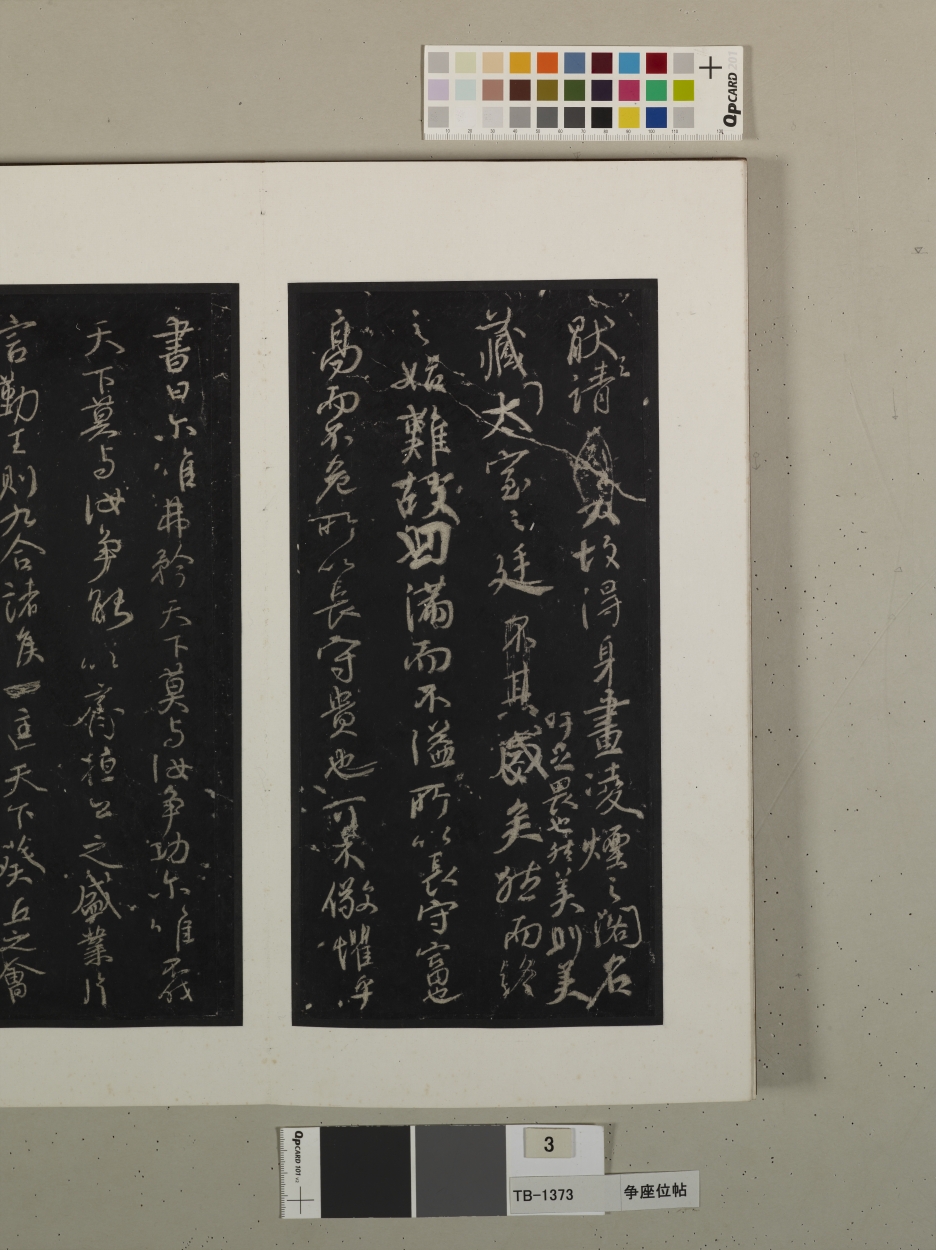 猒之請故得身畫凌煙之閣名
藏太室之廷
吁足畏也然美則美
矣然而終
之始難故曰滿而不溢所以長守富也
高而不危所以長守貴也可不儆懼乎
書曰尔唯弗矜天下莫与汝爭功尔唯不伐
天下莫与汝爭能以齊桓公之盛業片
言勤王則九合諸侯一匡天下葵丘之會
QpCARD 201
QpCARD 101
3
TB-1373
争座位帖